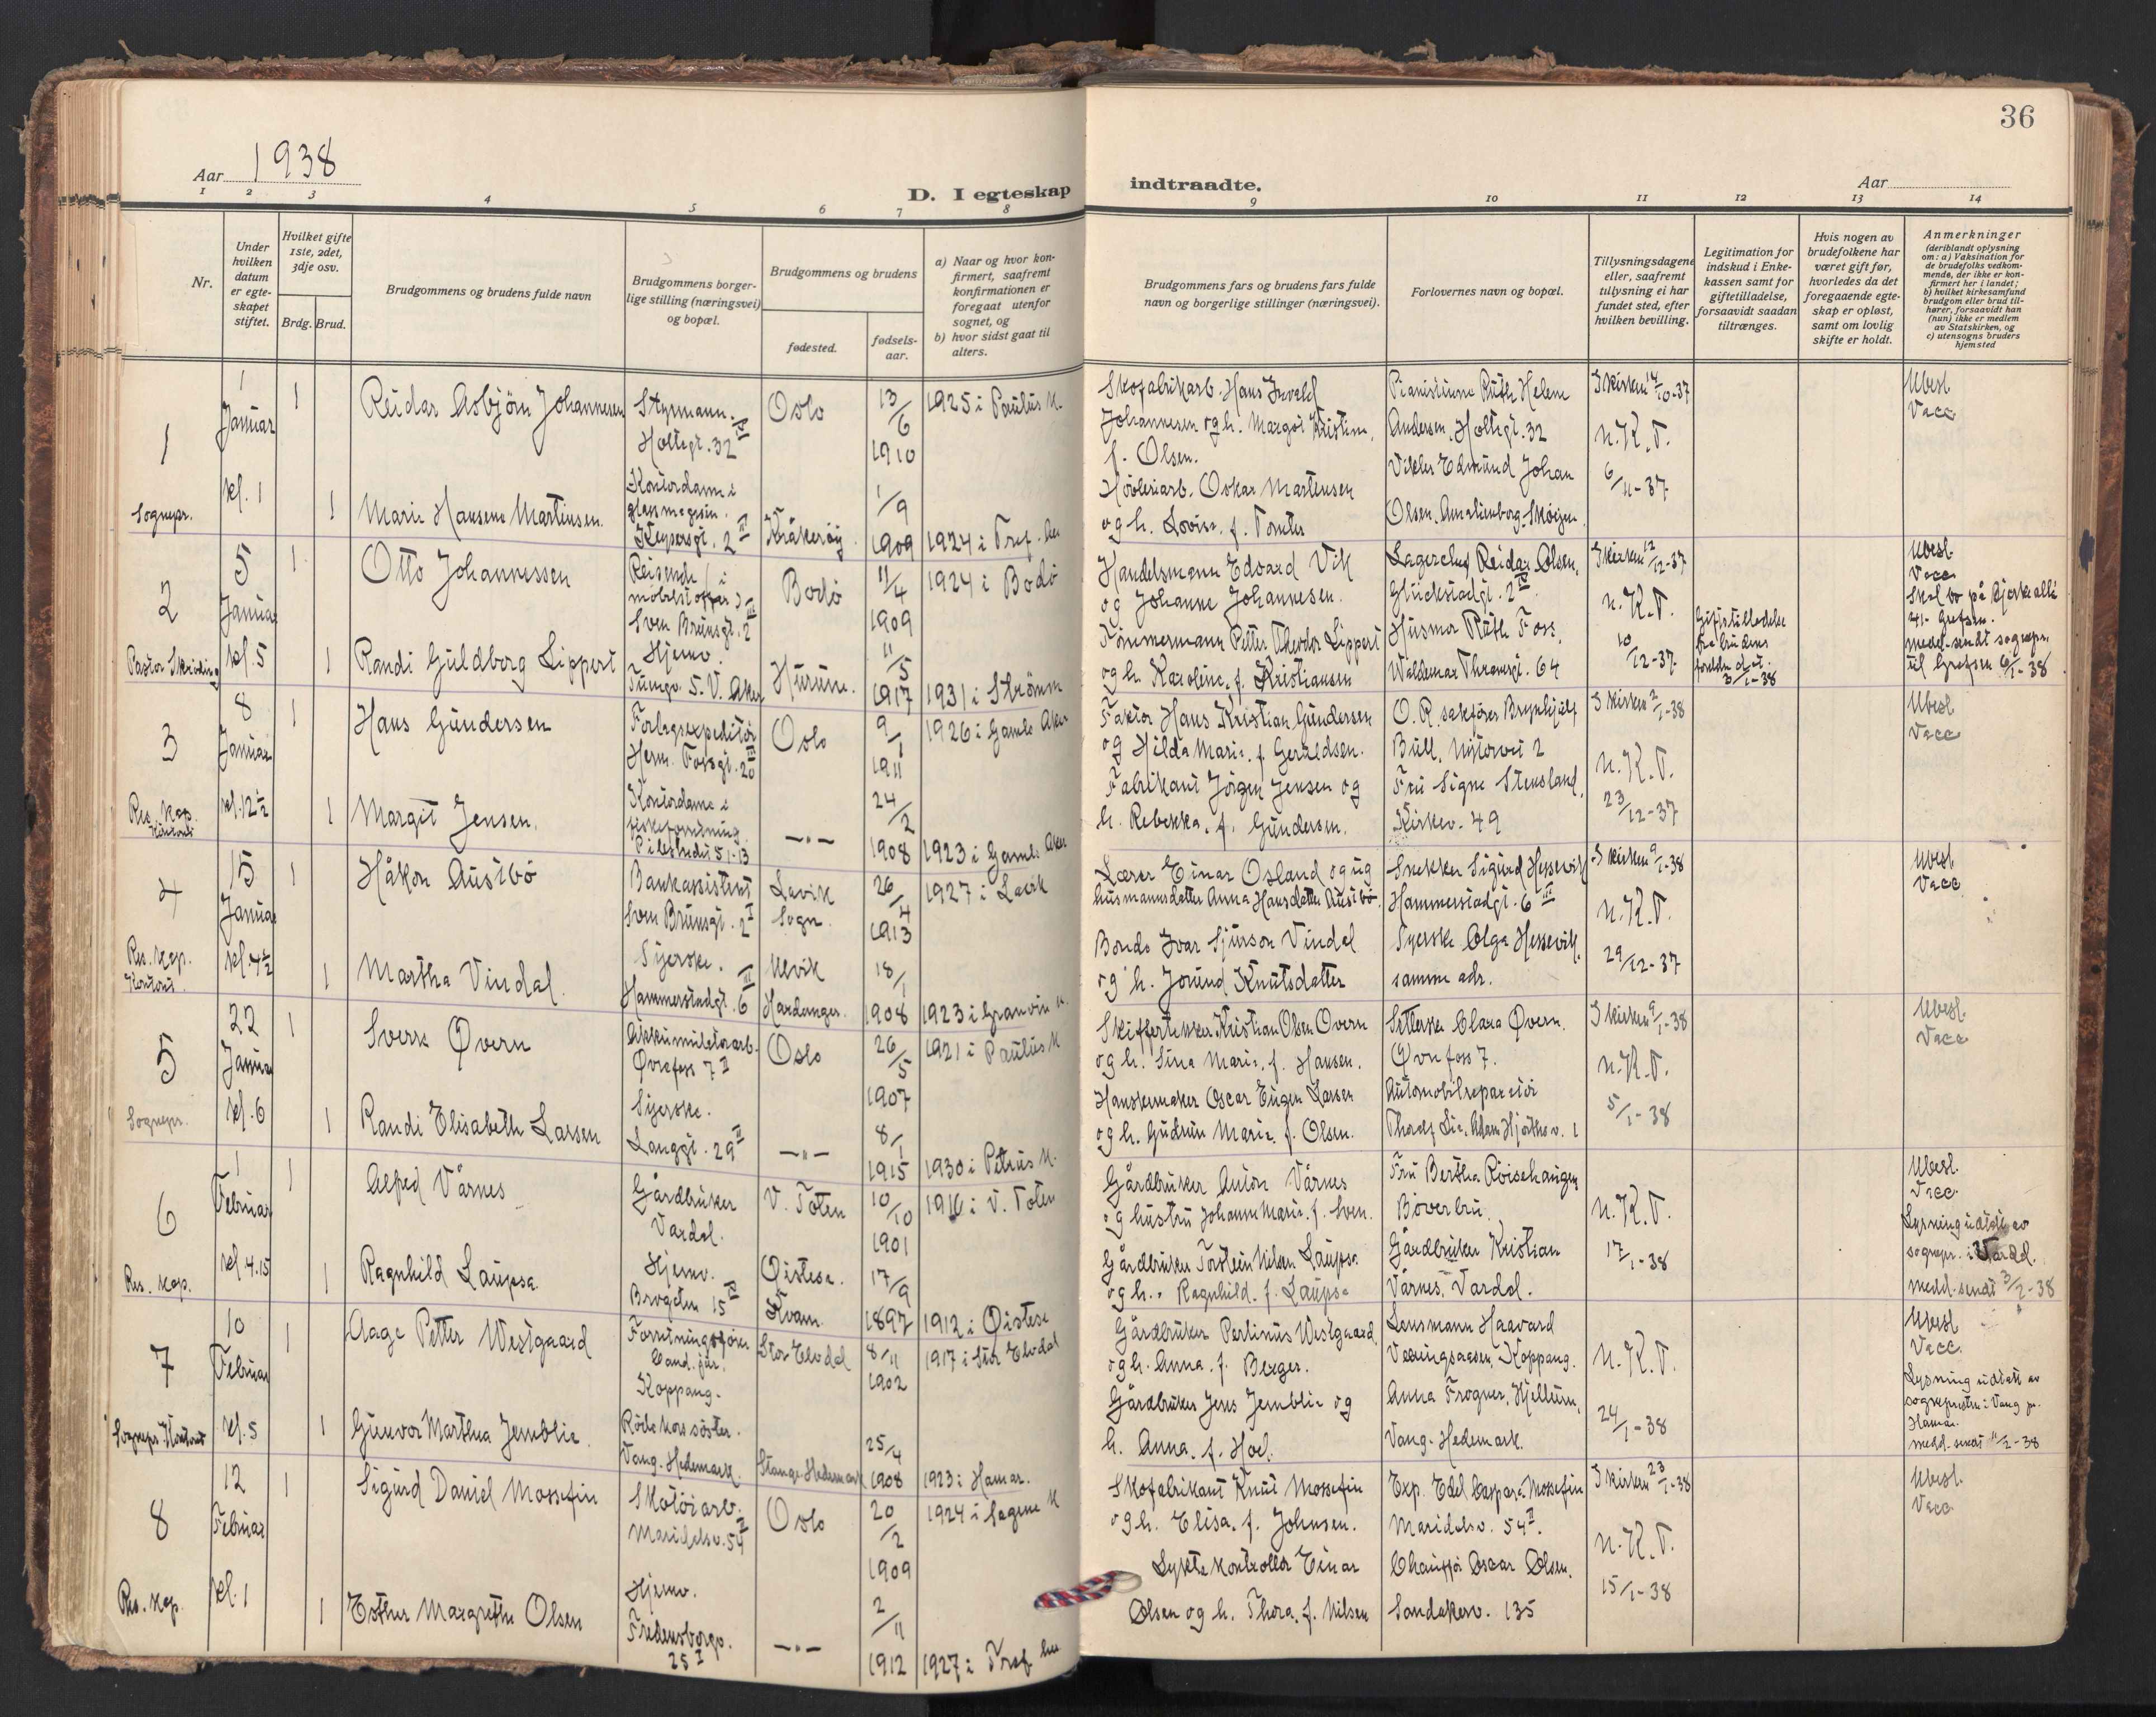 36
Aar 1938
D. I egteskap indtraadte.
Aar
1 2 3 4 5 6 7 8 9 10 11 12 13 14
Nr.
Under hvilken datum er egteskapet stiftet.
Hvilket gifte 1ste, 2det, 3dje osv.
Brdg. Brud.
Brudgommens og brudens fulde navn
Brudgommens borgerlige stilling (næringsvei) og bopæl.
Brudgommens og brudens
fødested.
fødselsaar.
a) Naar og hvor konfirmert, saafremt konfirmationen er foregaat utenfor sognet, og
b) hvor sidst gaat til alters.
Brudgommens fars og brudens fars fulde navn og borgerlige stillinger (næringsvei).
Forlovernes navn og bopæl.
Tillysningsdagene eller, saafremt tillysning ei har fundet sted, efter hvilken bevilling.
Legitimation for indskud i Enkekassen samt for giftetilladelse, forsaavidt saadan tiltrænges.
Hvis nogen av brudefolkene har været gift før, hvorledes da det foregaaende egteskap er opløst, samt om lovlig skifte er holdt.
Anmerkninger
(deriblandt oplysning om: a) Vaksination for de brudefolks vedkommende, der ikke er konfirmert her i landet;
b) hvilket kirkesamfund brudgom eller brud tilhører, forsaavidt han (hun) ikke er medlem av Statskirken, og
c) utensogns bruders hjemsted
1
Sognepr.
1 Januar kl. 1
1
Reidar Asbjörn Johannesen
Styrmann.
Holtegt. 32 IV
Oslo
13/6 1910
1925 i Paulus k.
Skofabrikarb. Hans
Johannesen og h. Margot Kristine,
f. Olsen.
Pianistinne Ruth Helene
Andersen, Holtegt. 32
I kirken 14/10-37
n.K.V.
6/11-37
Ubesl.
Vacc.
1
Marie Hansene Martinsen.
Kontordame i
glassmagasin.
Keysersgt. 2 III
Kråkeröy
1/9 1909
1924 i Tref.
Hövleriarb. Oskar Martensen
og h. Lovise, f. Tomter
Vikler Edmund Johan
Olsen, Amalienborg, Skøyen
2
Pastor Skriding
5 Januar kl. 5
1
Otto Johannessen
Reisende (i
möbelstoffer)
Sven Bruunsgt. 2 III
Bodö
11/4 1909
1924 i Bodö
Handelsmann Edvard Vik
og Johanne Johannesen.
Lagerchef Reidar Olsen,
Glückstadgt. 2 IV
I kirken 12/12-37
n.K.V.
10/12-37.
Giftetilladelse
fra brudens
foreldre d.t.
3/1-38
Ubesl.
Vacc.
Skal bo på Bjerke allé
41. Grefsen.
medd. sendt sognepr.
til Grefsen 6/1-38
1
Randi Guldborg Lippert
Hjemv.
Tuengv. 5. V. Aker
Hurum.
11/5 1917
1931 i Strömm
Tömmermann Petter Theodor Lippert
og h. Karoline, f. Kristiansen
Husmor Ruth Foss,
Waldemar Thranesgt. 64
3
Res. kap.
8 Januar kl. 12½
1
Hans Gundersen
Forlagsexpeditör
Herm. Fossgt. 20 III
Oslo
9/1 1911
1926 i Gamle Aker
Faktor Hans Kristian Gundersen
og Hilda Marie, f. Geraldsen.
O. R. sakförer Brynhjulf
Bull, Nytorvei 2
I kirken 2/1-38
n.K.V.
23/12-37
Ubesl
Vacc
1
Margit Jensen.
Kontordame i
fiskeforretning
Pilestredet 51-13
—„—
24/2 1908
1923 i Gamle Aker
Fabrikant Jörgen Jensen og
h. Rebekka, f. Gundersen.
Fru Signe Stensland,
Kirkev. 49
4
Res. kap.
15 Januar kl. 4½
1
Håkon Austbö
Bankassistent
Sven Bruunsgt. 2 I
Lavik
Sogn.
26/4 1913
1927 i Lavik
Lærer Einar Osland og ug
husmannsdatter Anna Hansdatter Austbö.
Snekker Sigurd Hessevik
Hammerstadgt. 6 III
I kirken 9/1-38
n.K.V.
29/12-37
Ubesl.
Vacc
1
Martha Vindal.
Syerske.
Hammerstadgt. 6 III
Ulvik
Hardanger.
18/1 1908
1923 i Granvin k.
Bonde Ivar Sjurson Vindal
og h. Jorund Knutsdatter
Syerske Olga Hessevik.
samme adr.
5
Sognepr.
22 Januar kl. 6
1
Sverk Øvern
Akkumulatorarb.
Øvrefoss 7 II
Oslo
26/5 1907
1921 i Paulus k
Skiffertekker Kristian Olsen Overn
og h. Sina Marie, f. Hansen.
Setterske Clara Øvern.
Øvrefoss 7.
I kirken 9/1-38
n.K.V.
5/1-38
Ubesl.
Vacc
1
Randi Elisabeth Larsen
Syerske.
Langgt. 29 II
—„—
8/1 1915
1930 i Petrus k.
Hanskemaker Oscar Eugen Larsen
og h. Gudrun Marie, f. Olsen.
Automobilreparatör
Thorlf Lie, Adam Hjorthsv. 1
6
Res. kap.
1 Februar kl. 4.15
1
Alfred Vårnes
Gårdbruker
Vardal.
V. Toten
10/10 1901
1916 i V. Toten
Gårdbruker Anton Vårnes
og hustru Johanne Marie, f. Sven.
Fru Bertha Röisehaugen
Böverbru.
n.K.V.
17/1-38
Ubesl.
Vacc.
Lysning utstedt av
sognepr. i Vardal.
medd. sendt 3/2-38
1
Ragnhild Laupsa
Hjemv.
Brogaten 15 IV
Öistese.
Kvam.
17/9 1897
1912 i Öistese
Gårdbruker Torstein Nilsen Laupsa
og h. Ragnhild, f. Laupsa
Gårdbruker Kristian
Vårnes, Vardal.
7
Sognepr.
10 Februar kl. 5
1
Aage Petter Westgaard
Forretningsförer
Cand. jur.
Koppang.
Stor Elvdal
8/11 1902
1917 i Stor Elvdal
Gårdbruker Perlinus Westgaard
og h. Anna, f. Berger.
Lensmann Haavard
Koppang.
n.K.V.
24/1-38
Ubesl
Vacc.
Lysning utstedt av
sognepresten i Vang pr.
Hamar.
medd. sendt 11/2-38
1
Gunvor Marthea Jemblie.
Röde kors söster.
Vang. Hedemark.
Stange Hedemark
25/4 1908
1923 i Hamar.
Gårdbruker Jens Jemblie og
h. Anna, f. Hoel.
Anna Frogner, Hjellum,
Vang. Hedemark.
8
Res. kap.
12 Februar kl. 1
1
Sigurd Daniel Mossefin
Skotöiarb.
Maridalsv. 54 II
Oslo
20/2 1909
1924 i Sagene k
Skofabrikant Knut Mossefin
og h. Elisa, f. Johnsen.
Exp. Edel Caspara Mossefin
Maridalsv. 54 II.
I kirken 23/1-38
n.K.V.
15/1-38
Ubesl.
Vacc
1
Esther Margrethe Olsen
Hjemv.
Fredensborgv.
25 I
—„—
2/11 1912
1927 i Tref.
Lyktekontrollör Einar
Olsen og h. Thora, f. Nilsen
Chaufför Oscar Olsen.
Sandakerv. 135